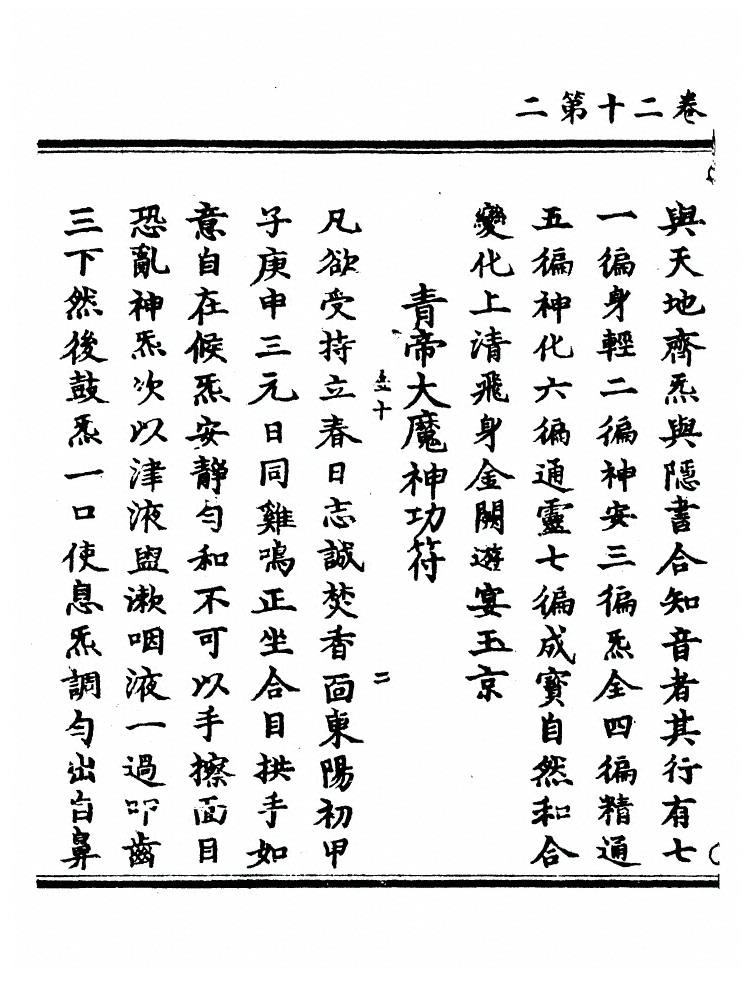 卷二十第二
與天地齊炁與隱書合知音者其行有七
一徧身輕二徧神安三徧炁全四徧精通
五徧神化六徧通靈七徧成寶自然和合
變化上清飛身金闕遊宴玉京
青帝大魔神功符
凡欲受持立春日志誠焚香面東陽初甲
子庚申三元日同雞鳴正坐合目拱手如
意自在候炁安靜勻和不可以手擦面目
恐亂神炁次以津液盥漱咽液一過叩齒
三下然後鼓炁一口使息炁調勻出自鼻